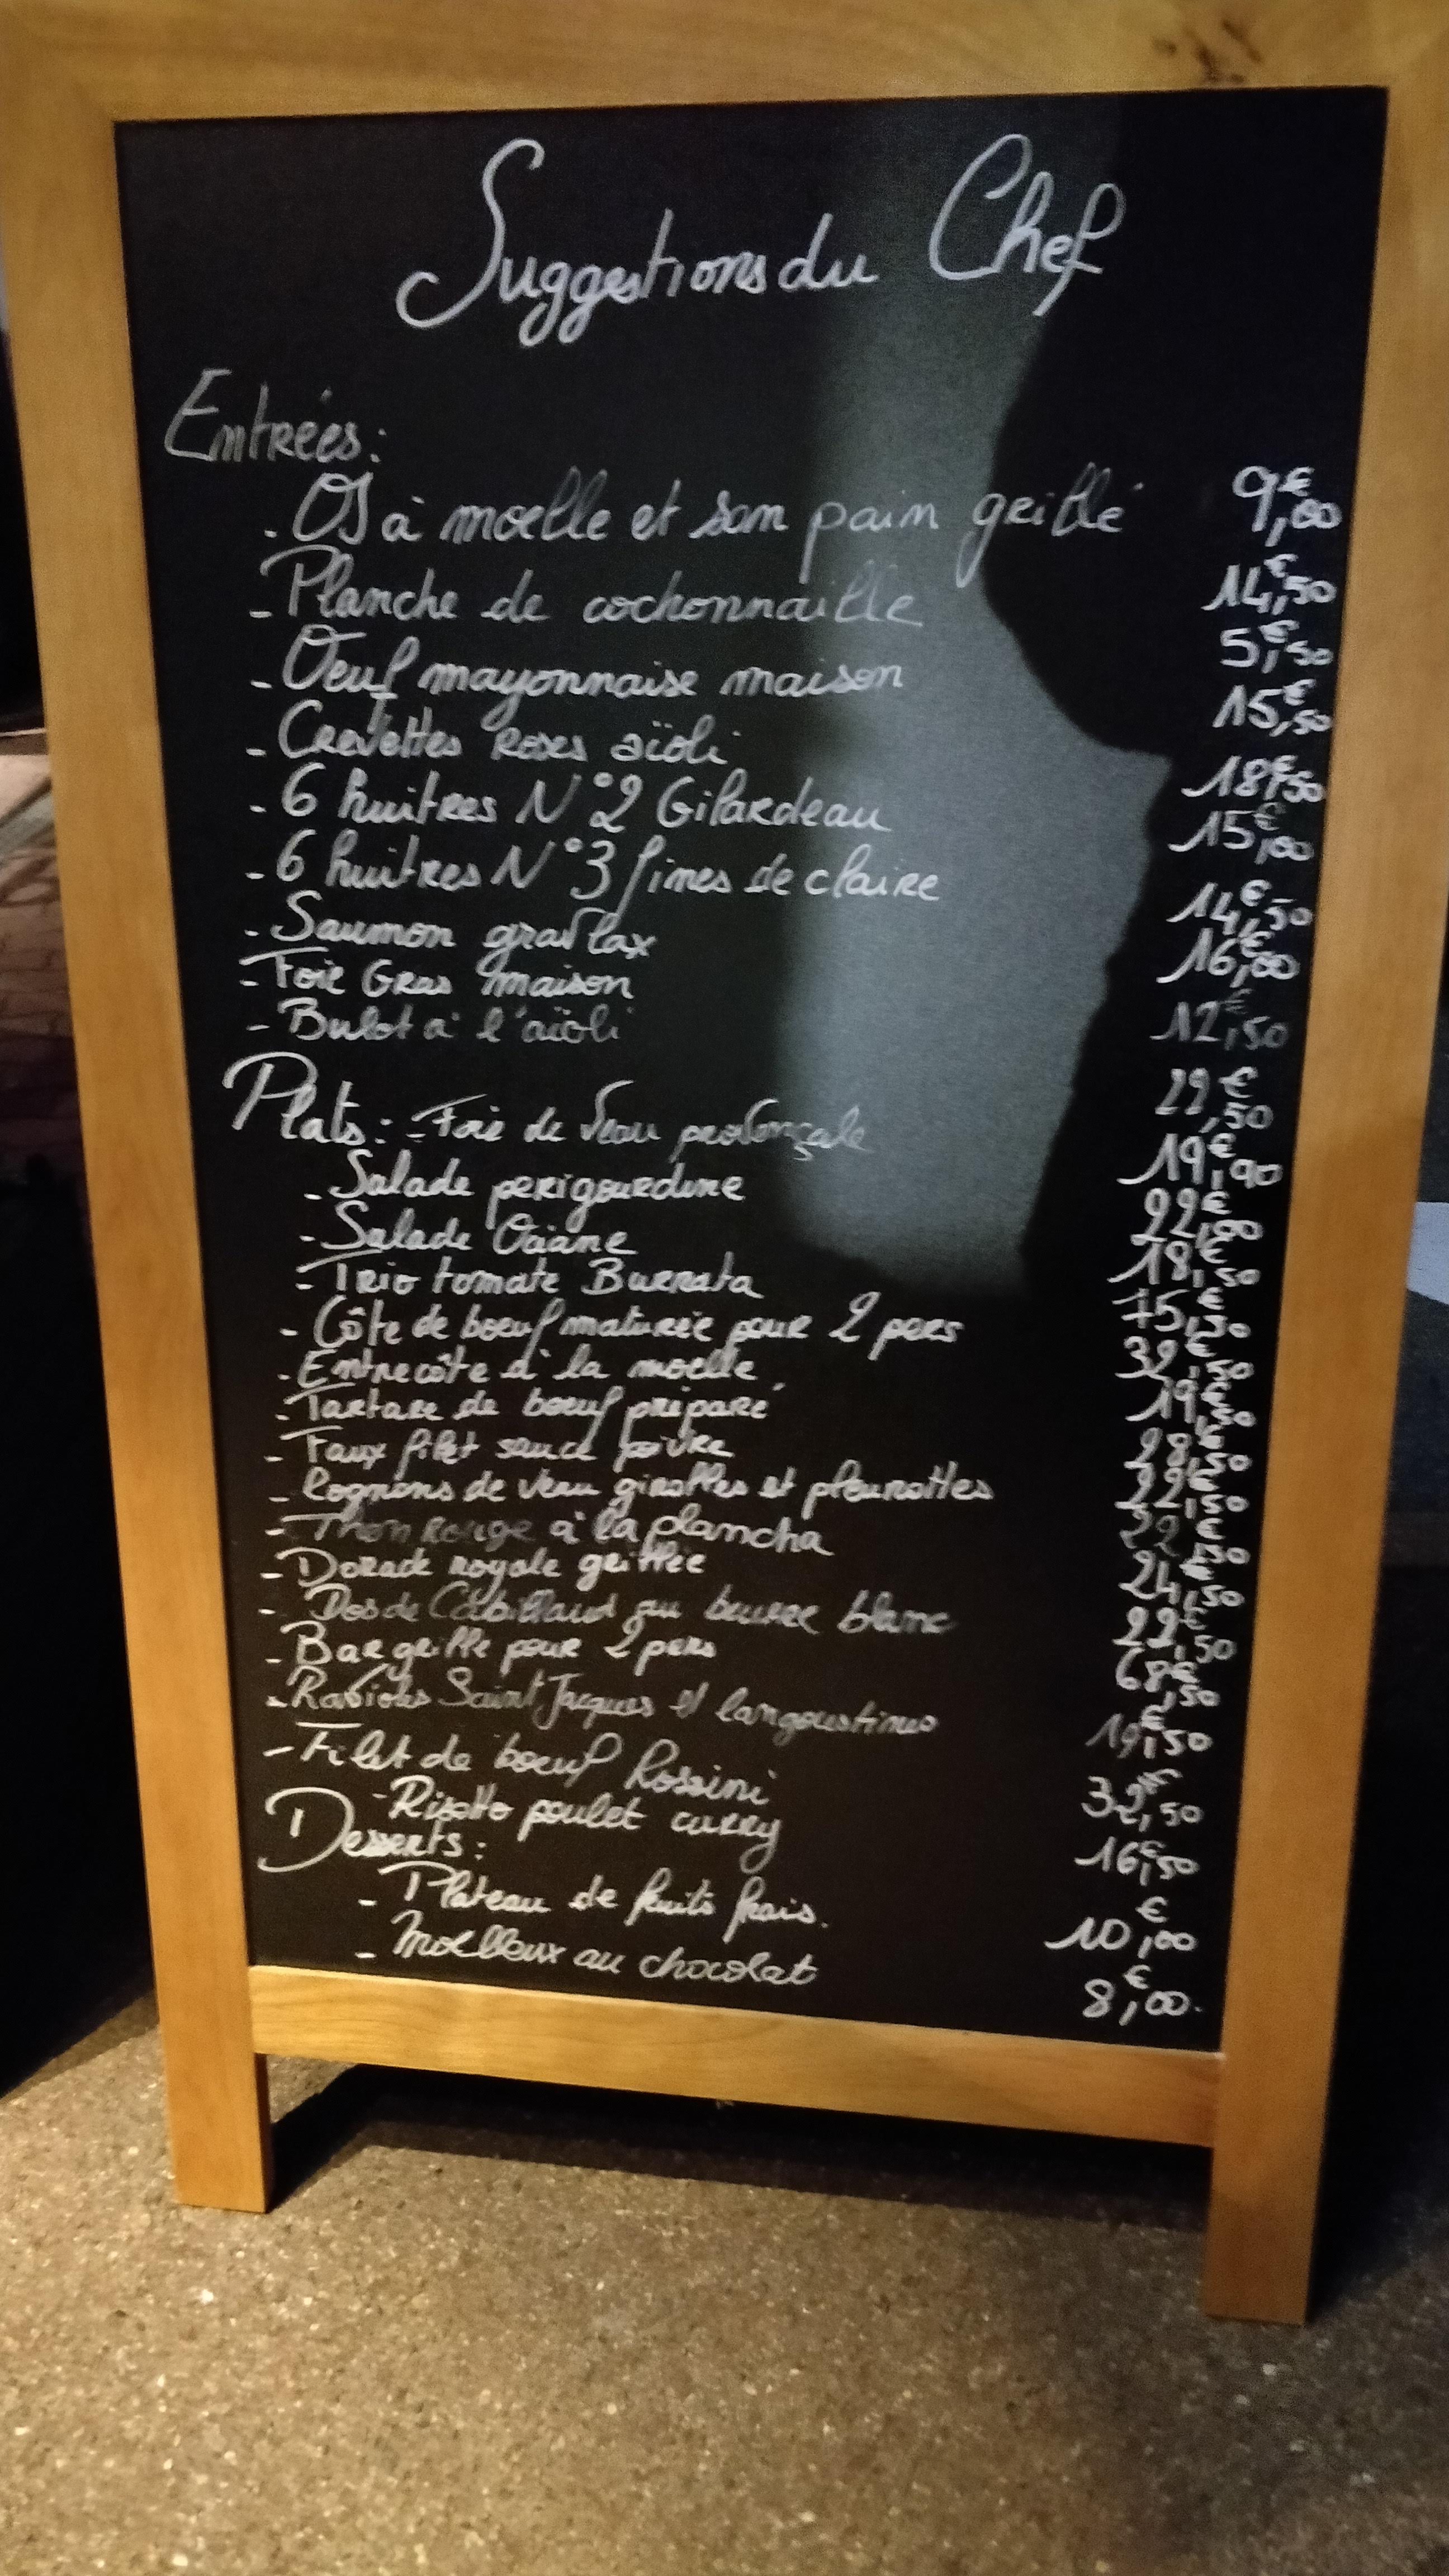 Suggestions du Chef
Entrées:
- Os à moelle et son pain grillé 9,00€
- Planche de cochonnaille 14,50€
- Oeuf mayonnaise maison 5,50€
- Crevettes roses aïoli 15,50€
- 6 huitres N°2 Gilardeau 18,50€
- 6 huitres N°3 fines de claire 15,00€
- Saumon gravlax 14,50€
- Foie Gras maison 16,00€
- Bulot à l'aïoli 12,50€
Plats: - Foie de veau provençale 22,50€
- Salade perigourdine 19,90€
- Salade Océane 22,00€
- Trio tomate Burrata 18,50€
- Côte de boeuf maturée pour 2 pers 75,50€
- Entrecôte à la moelle 32,50€
- Tartare de boeuf préparé 19,50€
- Faux filet sauce poivre 28,50€
- Rognons de veau girolles et pleurottes 22,50€
- Thon rouge à la plancha 22,50€
- Dorade royale grillée 24,50€
- Dos de Cabillaud au beurre blanc 22,50€
- Bar grillé pour 2 pers 68,50€
- Ravioles Saint Jacques et langoustines 19,50€
- Filet de boeuf Rossini 32,50€
- Risotto poulet curry 16,50€
Desserts:
- Plateau de fruits frais. 10,00€
- Moelleux au chocolat 8,00€